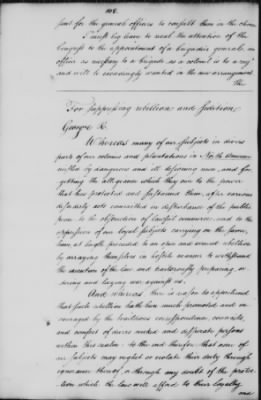 108.
sent for the general officers to consult them in the choice
I must beg leave to recal the attention of the
Congress to the appointment of a brigadier general, an
officer as necessary to a brigade as a colonel is to a regt
and will be exceedingly wanted in the new arrangement
The
For suppressing rebellion and sedition
George R.
Whereas many of our subjects in divers
parts of our colonies and plantations in North America
misled by dangerous and ill designing men, and for
getting the allegiance which they owe to the power
that has protected and sustained them, after various
disorderly acts committed in disturbance of the public
peace to the obstruction of lawful commerce, and to the
oppression of our loyal subjects carrying on the same,
have at length proceeded to an open and avowed rebellion
by arraying themselves in hostile manner to withstand
the execution of the law and traitorously preparing, or
dering and levying war against us.
And whereas there is reason to apprehend
that such rebellion hath been much promoted and en
couraged by the traitorous correspondence, counsels,
and comfort of divers wicked and desperate persons
within this realm: to the end therefore that none of
our subjects may neglect or violate their duty through
ignorance thereof, or through any doubt of the protec
tion which the law will afford to their loyalty
and